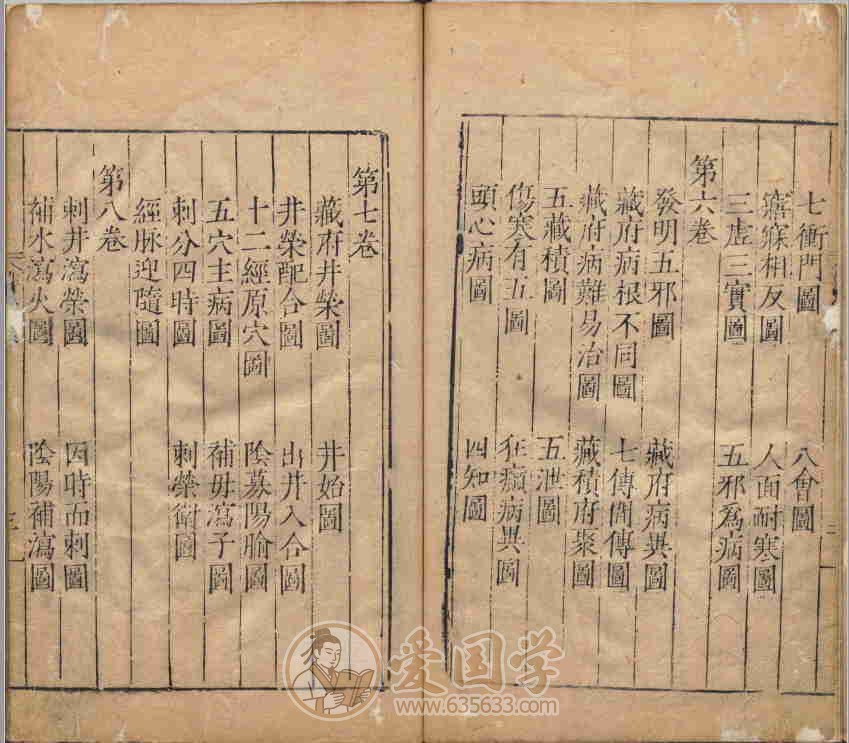 七衝門圖　八會圖
寤寐相反圖　人面耐寒圖
三虛三實圖　五邪為病圖
第六卷
發明五邪圖　藏府病異圖
藏府病根不同圖　七傳間傳圖
藏府病難易治圖　藏積府聚圖
五藏積圖　五泄圖
傷寒有五圖　狂癲病異圖
頭心病圖　四知圖
第七卷
藏府井滎圖　井始圖
井滎配合圖　出井入合圖
十二經原穴圖　陰募陽腧圖
五穴主病圖　補母瀉子圖
刺分四時圖　刺榮衛圖
經脉迎隨圖
第八卷
刺井瀉滎圖　因時而刺圖
補水瀉火圖　陰陽補瀉圖
二
三
爱国学
www.635633.com